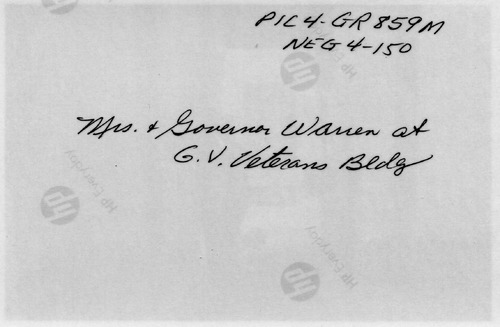 PIC 4-GR 859M
NEG 4-150
Mrs. & Governor Warren at
G.V. Veterans Bldg
hp HP Everyday
hp HP Everyday
hp HP Everyday